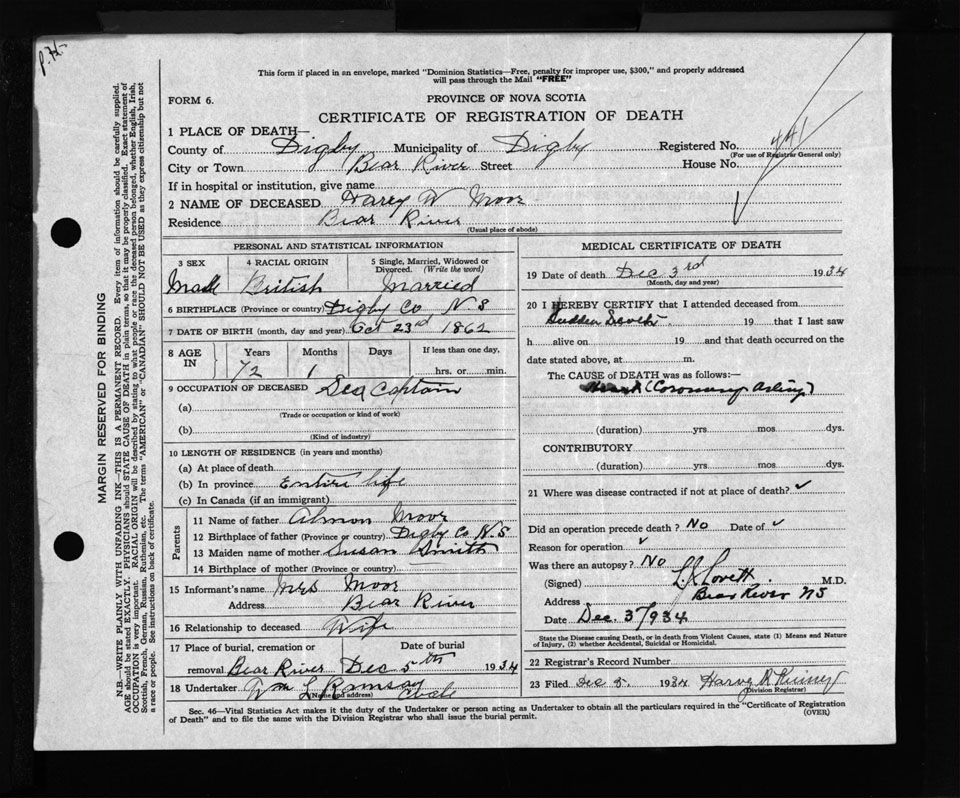 This form if placed in an envelope, marked "Dominion Statistics—Free, penalty for improper use, $300," and properly addressed
will pass through the Mail "FREE"
FORM 6.
PROVINCE OF NOVA SCOTIA
CERTIFICATE OF REGISTRATION OF DEATH
1 PLACE OF DEATH—
County of Digby Municipality of Digby Registered No. 441
(For use of Registrar General only)
City or Town Bear River Street House No.
If in hospital or institution, give name
2 NAME OF DECEASED Harry W Moor
Residence Bear River
(Usual place of abode)
PERSONAL AND STATISTICAL INFORMATION
3 SEX 4 RACIAL ORIGIN 5 Single, Married, Widowed or
Divorced. (Write the word)
Male British Married
6 BIRTHPLACE (Province or country) Digby Co N.S
7 DATE OF BIRTH (month, day and year) Oct 23rd 1862
8 AGE IN Years Months Days If less than one day,
72 1 hrs. or min.
9 OCCUPATION OF DECEASED Sea Captain
(a)
(Trade or occupation or kind of work)
(b)
(Kind of industry)
10 LENGTH OF RESIDENCE (in years and months)
(a) At place of death
(b) In province Entire life
(c) In Canada (if an immigrant)
Parents
11 Name of father Almon Moor
12 Birthplace of father (Province or country) Digby Co N.S
13 Maiden name of mother Susan Smith
14 Birthplace of mother (Province or country)
15 Informant's name Mrs Moor
Address Bear River
16 Relationship to deceased Wife
17 Place of burial, cremation or Date of burial
removal Bear River Dec 5th 1934
18 Undertaker Wm L Ramsay
(Name and address)
MEDICAL CERTIFICATE OF DEATH
19 Date of death Dec 3rd 1934
(Month, day and year)
20 I HEREBY CERTIFY that I attended deceased from
Sudden 19 that I last saw
h alive on 19 and that death occurred on the
date stated above, at m.
The CAUSE OF DEATH was as follows:—
(Coronary
(duration) yrs mos dys.
CONTRIBUTORY
(duration) yrs mos dys.
21 Where was disease contracted if not at place of death?
Did an operation precede death? No Date of
Reason for operation
Was there an autopsy? No
(Signed) L.J. Lovett M.D.
Address Bear River NS
Date Dec. 3/934
State the Disease causing Death, or in death from Violent Causes, state (1) Means and Nature
of Injury, (2) whether Accidental, Suicidal or Homicidal.
22 Registrar's Record Number
23 Filed Dec 1934 Harvey
(Division Registrar)
Sec. 46—Vital Statistics Act makes it the duty of the Undertaker or person acting as Undertaker to obtain all the particulars required in the "Certificate of Registration
of Death" and to file the same with the Division Registrar who shall issue the burial permit.
(OVER)
MARGIN RESERVED FOR BINDING
N.B.—WRITE PLAINLY WITH UNFADING INK—THIS IS A PERMANENT RECORD. Every item of information should be carefully supplied.
AGE should be stated EXACTLY. PHYSICIANS should STATE CAUSE OF DEATH in plain terms, so that it may be properly classified. Exact statement of
OCCUPATION is very important. RACIAL ORIGIN will be described by stating to what people or race the deceased person belonged, whether English, Irish,
Scottish, French, German, Russian, Ruthenian, etc. The terms "AMERICAN" or "CANADIAN" SHOULD NOT BE USED as they express citizenship but not
a race or people. See instructions on back of certificate.